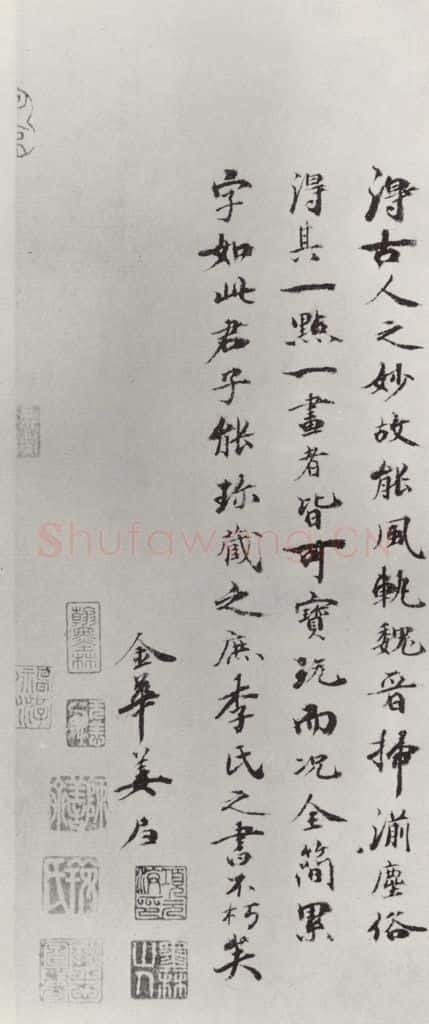 得古人之妙故能風軌魏晉掃湔塵俗
得其一點一畫者皆可寶玩而况全簡累
字如此君子能珎藏之庶李氏之書不朽矣
金華姜
項元汴印
墨林山人
Shufawang.CN